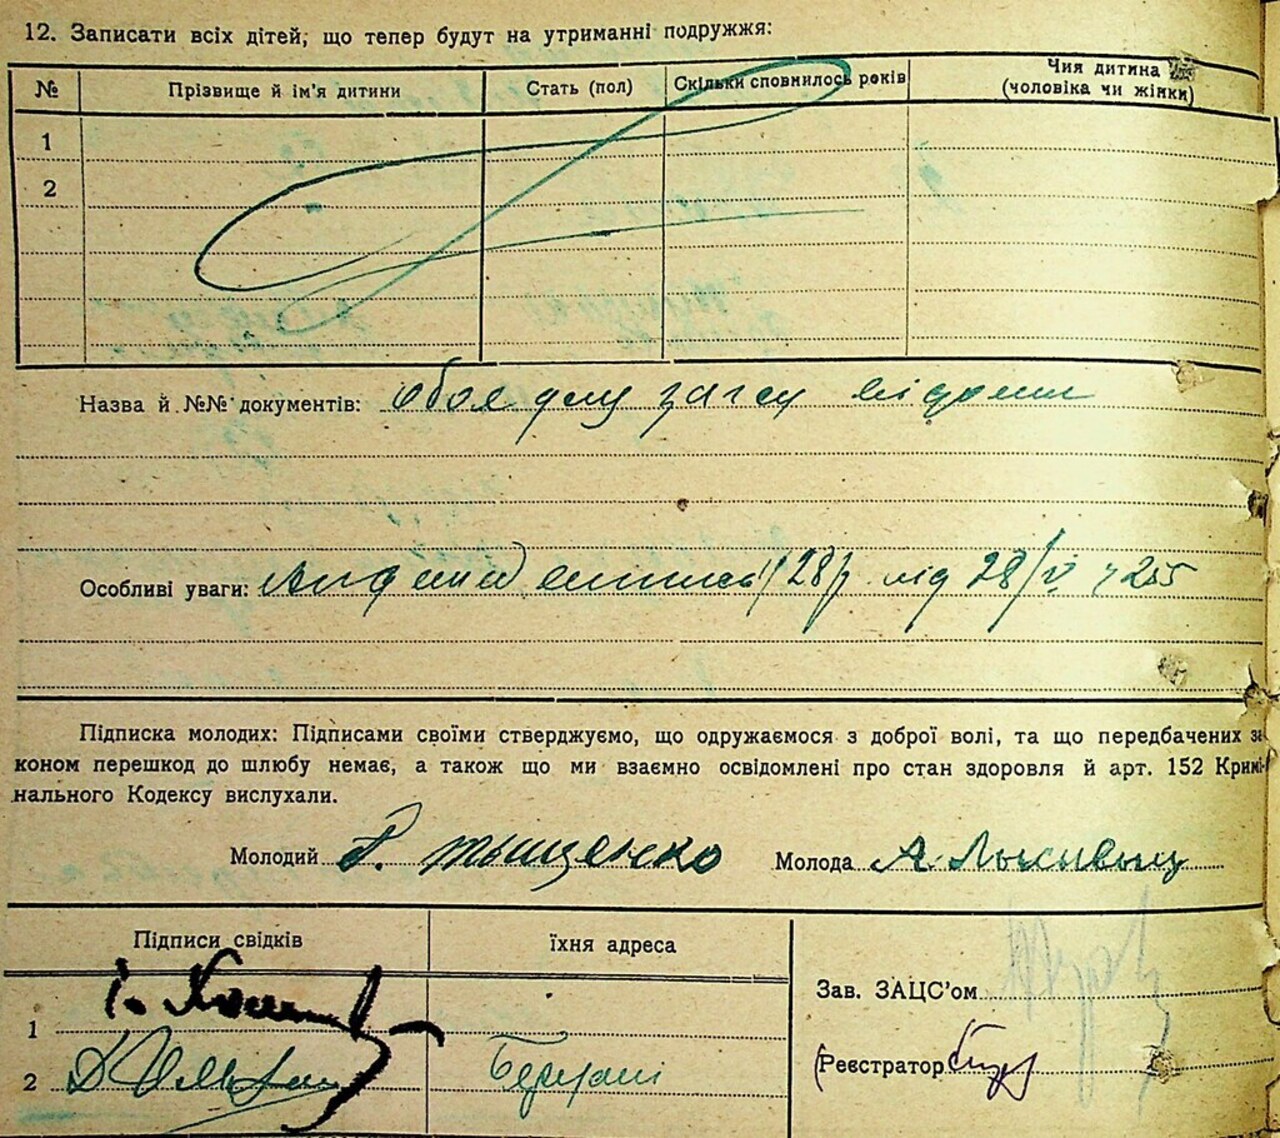 12. Записати всіх дітей, що тепер будут на утриманні подружжя:
№ Прізвище й ім'я дитини Стать (пол) Скільки сповнилось років Чия дитина (чоловіка чи жінки)
1
2
Назва й №№ документів: обоє загсу відомі
Особливі уваги: від 28/V ч 255
Підписка молодих: Підписами своїми стверджуємо, що одружаємося з доброї волі, та що передбачених за
коном перешкод до шлюбу немає, а також що ми взаємно освідомлені про стан здоровля й арт. 152 Кримі-
нального Кодексу вислухали.
Молодий Тыщенко Молода А.
Підписи свідків їхня адреса
Зав. ЗАЦС'ом
1
Реєстратор
2